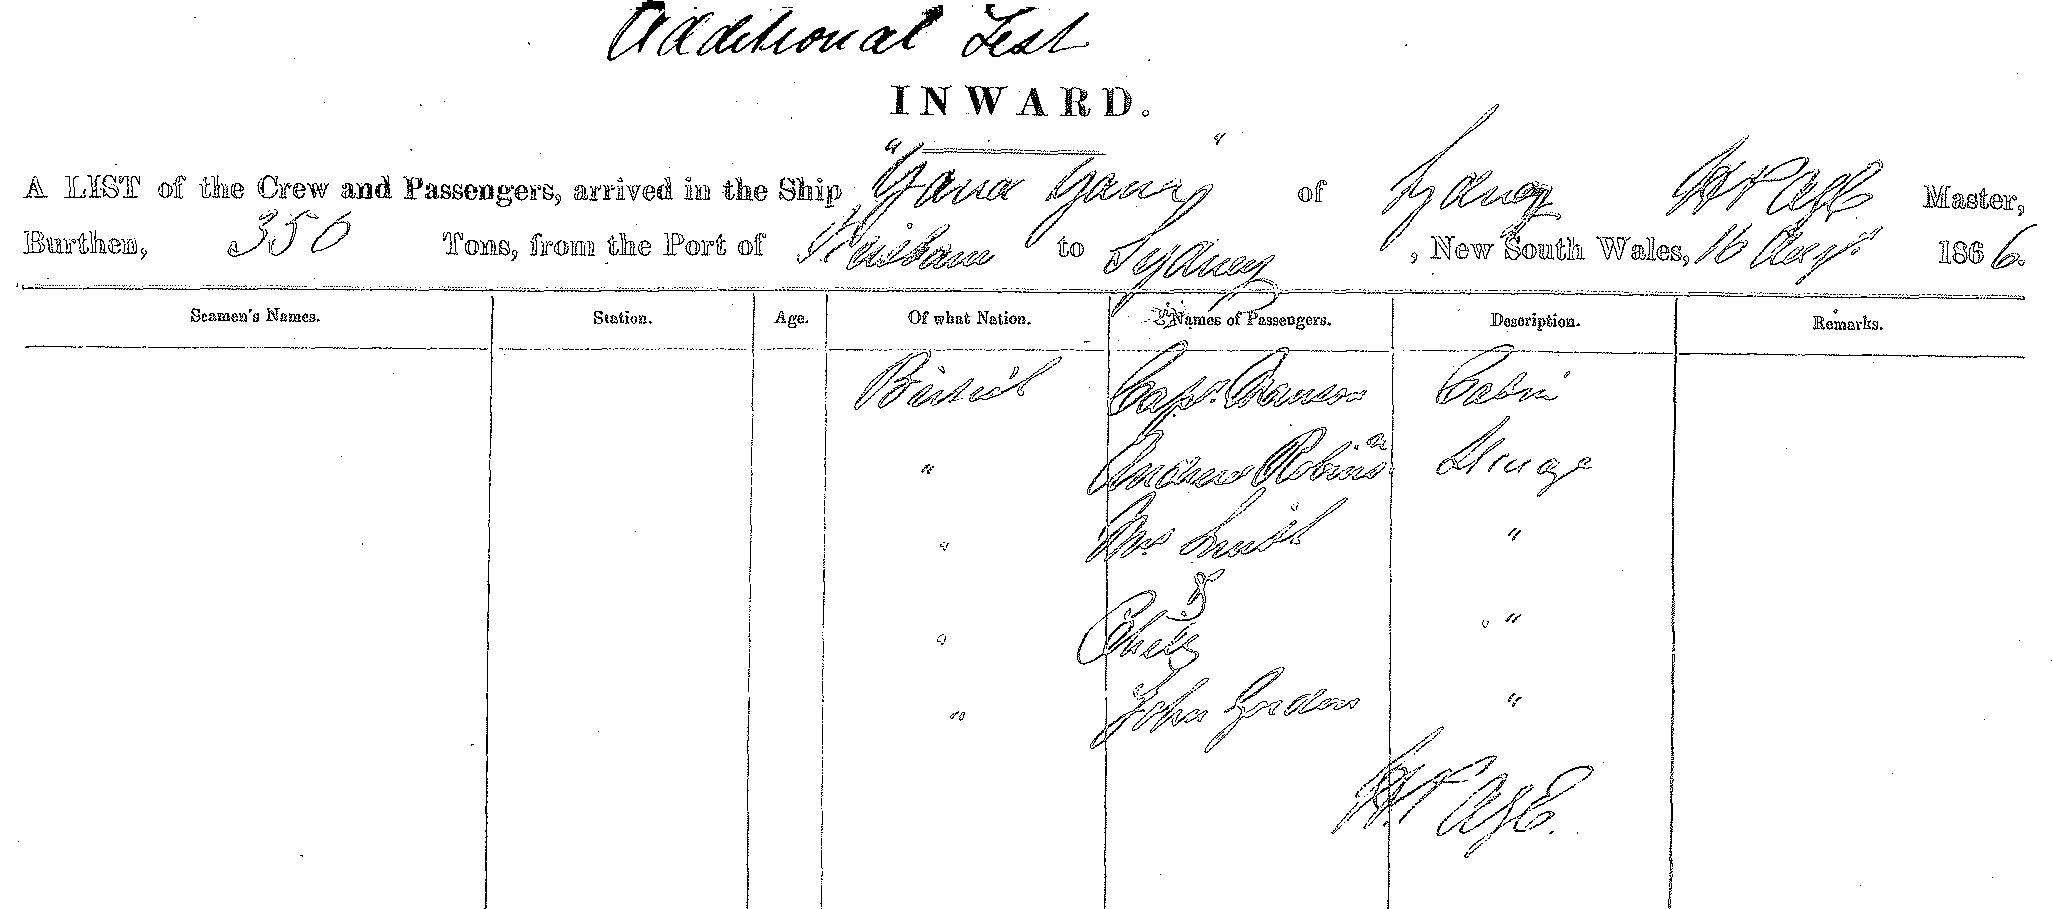 Additional List
INWARD.
A LIST of the Crew and Passengers, arrived in the Ship "Yarra Yarra" of Sydney H Page Master,
Burthen, 350 Tons, from the Port of Brisbane to Sydney, New South Wales, 16 Augt 1866.
Seamen's Names. Station. Age. Of what Nation. Names of Passengers. Description. Remarks.
British Capt. Cabin
" Andrew Robinson Stirage
" Mrs Smith "
" "
" John Gordon "
H Page.